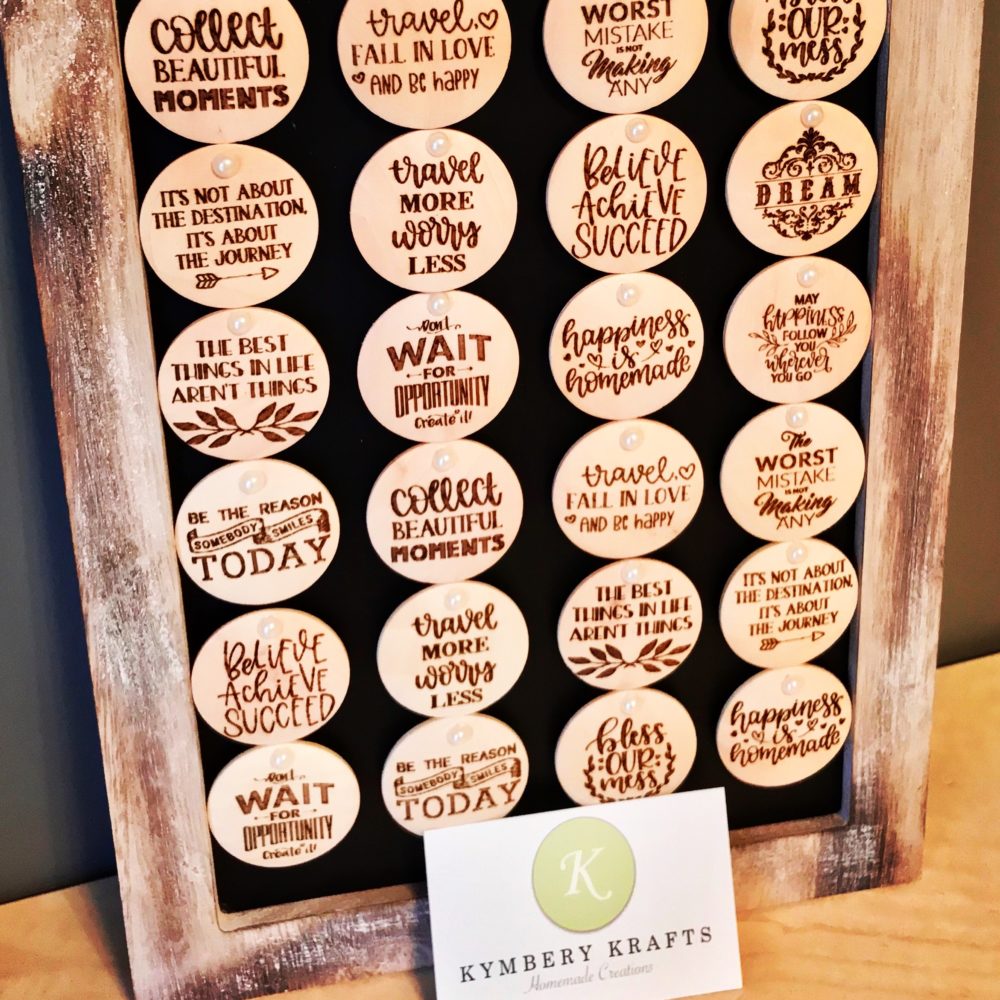 collect
BEAUTIFUL
MOMENTS
travel,
FALL IN LOVE
AND Be hAppy
WORST
MISTAKE
IS NOT
Making
ANY
bless
OUR
mess
IT'S NOT ABOUT
THE DESTINATION,
IT'S ABOUT
THE JOURNEY
travel
MORE
worry
LESS
BeLiEVE
AchiEVE
SUCCEED
DREAM
THE BEST
THINGS IN LIFE
AREN'T THINGS
don't
WAIT
FOR
OPPORTUNITY
Create it!
happiness
is
homemade
MAY
happiness
FOLLOW
YOU
wherever
YOU GO
BE THE REASON
SOMEBODY SMILES
TODAY
collect
BEAUTIFUL
MOMENTS
travel,
FALL IN LOVE
AND Be hAppy
The
WORST
MISTAKE
IS NOT
Making
ANY
BeLiEVE
AchiEVE
SUCCEED
travel
MORE
worry
LESS
THE BEST
THINGS IN LIFE
AREN'T THINGS
IT'S NOT ABOUT
THE DESTINATION,
IT'S ABOUT
THE JOURNEY
don't
WAIT
FOR
OPPORTUNITY
Create it!
BE THE REASON
SOMEBODY SMILES
TODAY
bless
OUR
mess
happiness
is
homemade
K
KYMBERY KRAFTS
Homemade Creations